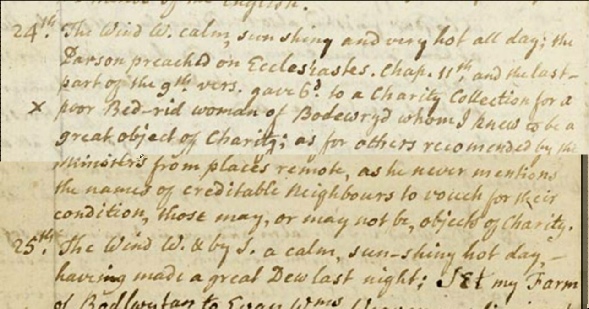 of the English.
24th. The Wind W. calm, sun shiny and very hot all day; the
Parson preached on Ecclesiastes. Chap. 11th, and the last
part of the 9th. vers. gave 6d. to a Charity Collection for a
x poor Bed-rid woman of Bodewryd whom I knew to be a
great object of Charity; as for others recomended by the
Ministers from places remote, as he never mentions
the names of creditable Neighbours to vouch for their
condition, those may, or may not be, objects of Charity.
25th. The Wind W. & by S. a calm, sun-shiny hot day,
having made a great Dew last night; Set my Farm
of Bodlwyfan to Evan Wms